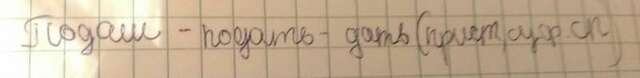 Подаш - подать - дать (прист, суф. сп)